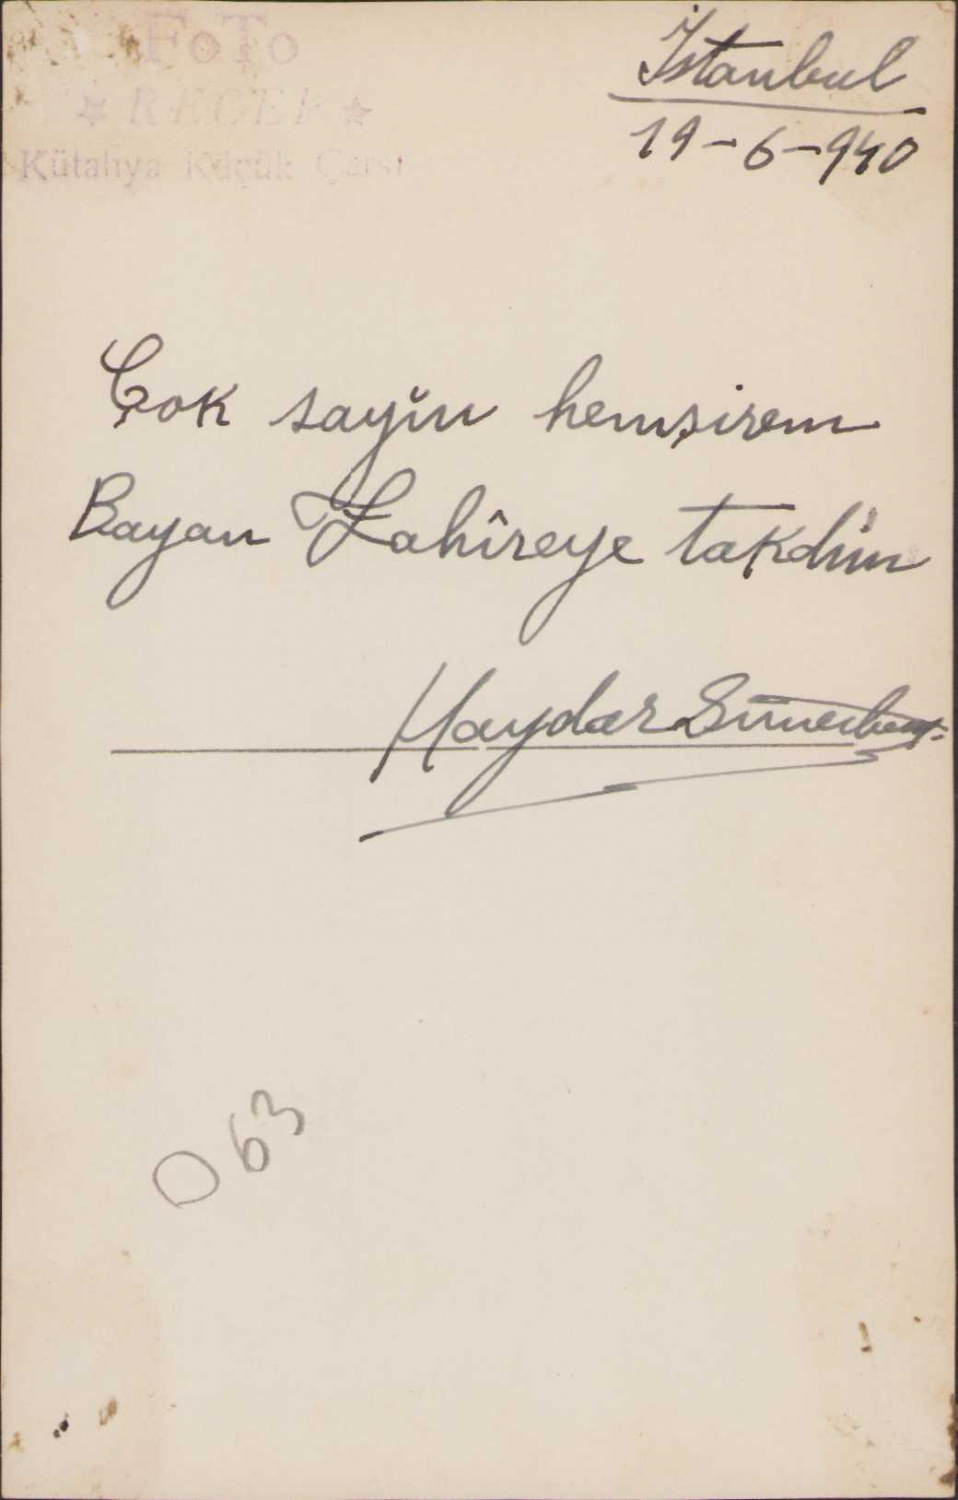 FoTo
★ RECEP ★
Kütahya Küçük Çarşı
İstanbul
19-6-940
Çok sayın hemşirem
Bayan Zahîreye takdim
Haydar
063